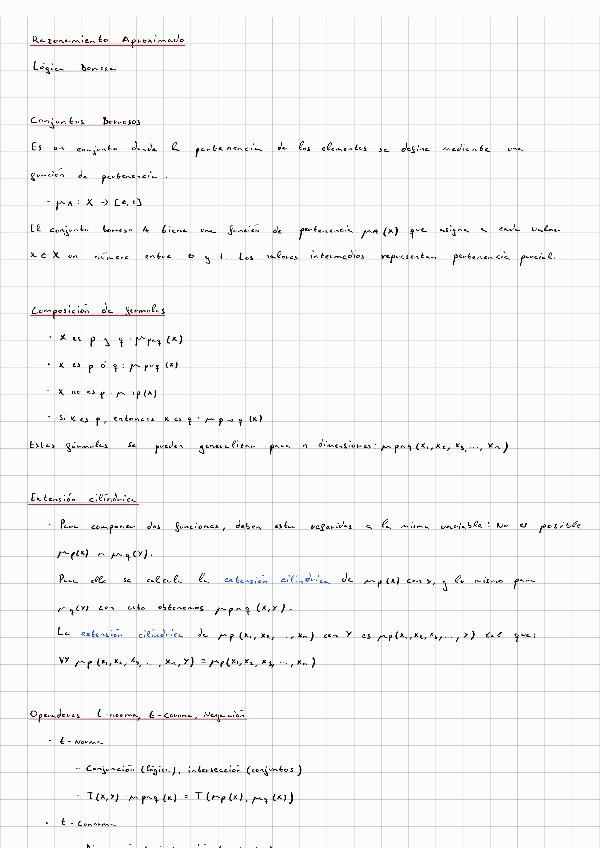 Razonamiento Aproximado
Lógica Borrosa
Conjuntos Borrosos
Es un conjunto donde la pertenencia de los elementos se define mediante una
función de pertenencia.
- μA: X → [0,1]
Un conjunto borroso A tiene una función de pertenencia μA(x) que asigna a cada valor
x ∈ X un número entre 0 y 1. Los valores intermedios representan pertenencia parcial.
Composición de fórmulas
· X es p y q: μp∧q (x)
· X es p ó q: μp∨q (x)
· X no es p: μ¬p(x)
· Si X es p, entonces X es q: μp→q (x)
Estas fórmulas se pueden generalizar para n dimensiones: μp∧q (x1, x2, x3, ..., xn)
Extensión cilíndrica
· Para componer dos funciones, deben estar referidas a la misma variable: No es posible
μp(x) ∧ μq(y).
Para ello se calcula la extensión cilíndrica de μp(x) con y, y lo mismo para
μq(y) con esto obtenemos μp∧q (x,y).
La extensión cilíndrica de μp(x1, x2, ..., xn) con Y es μp(x1, x2, x3, ..., y) tal que:
∀y μp(x1, x2, x3, ..., xn, y) = μp(x1, x2, x3, ..., xn)
Operadores t-norma, t-conorma, Negación
· t-Norma
- Conjunción (lógica), intersección (conjuntos)
- T(x,y) μp∧q (x) = T(μp(x), μq(x))
· t-Conorma